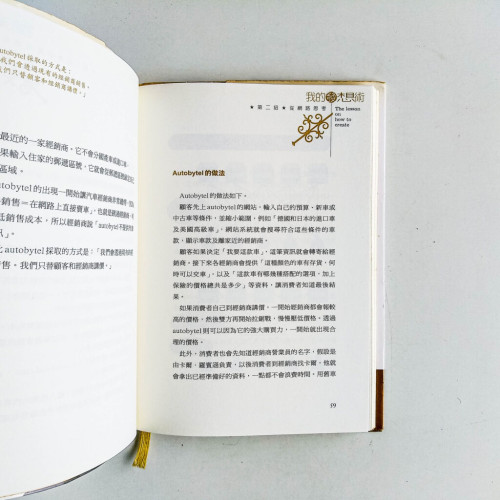 autobytel 採取的方式是：
我們會透過現有的經銷商銷售。
我們只替顧客和經銷商講價。」
最近的一家經銷商，它不會分國產車或進口車，
果輸入住家的郵遞區號，它就會從
區域。
autobytel 的出現一開始讓汽車經銷商
銷售＝在網路上直接賣車」。
售銷售成本，所以經銷商說「autobytel
訊」。
autobytel 採取的方式是：「我們會透過現有的經銷
售。我們只替顧客和經銷商講價。」
我的
術
The lesson
on
how to
create
第二招
從網路思考
Autobytel 的做法
Autobytel 的做法如下。
顧客先上 autobytel 的網站，輸入自己的預算、新車或
中古車等條件，並縮小範圍，例如「德國和日本的進口車
及美國高級車」。網站系統就會搜尋符合這些條件的車
款，顯示車款及離家近的經銷商。
顧客如果決定「我要這款車」，這筆資訊就會轉寄給經
銷商。接下來各經銷商會提供「這種顏色的車有存貨，何
時可以交車」，以及「這款車有哪幾種搭配的選項，加上
保險的價格總共是多少」等資料，讓消費者知道最後結
果。
如果消費者自己到經銷商講價，一開始經銷商都會報較
高的價格，然後雙方再開始拉鋸戰，慢慢壓低價格。透過
autobytel 則可以因為它的強大購買力，一開始就出現合
理的價格。
此外，消費者也會先知道經銷商營業員的名字，假設是
由卡爾．羅賓遜負責，以後消費者到經銷商找卡爾，他就
會拿出已經準備好的資料，一點都不會浪費時間。用舊車
59